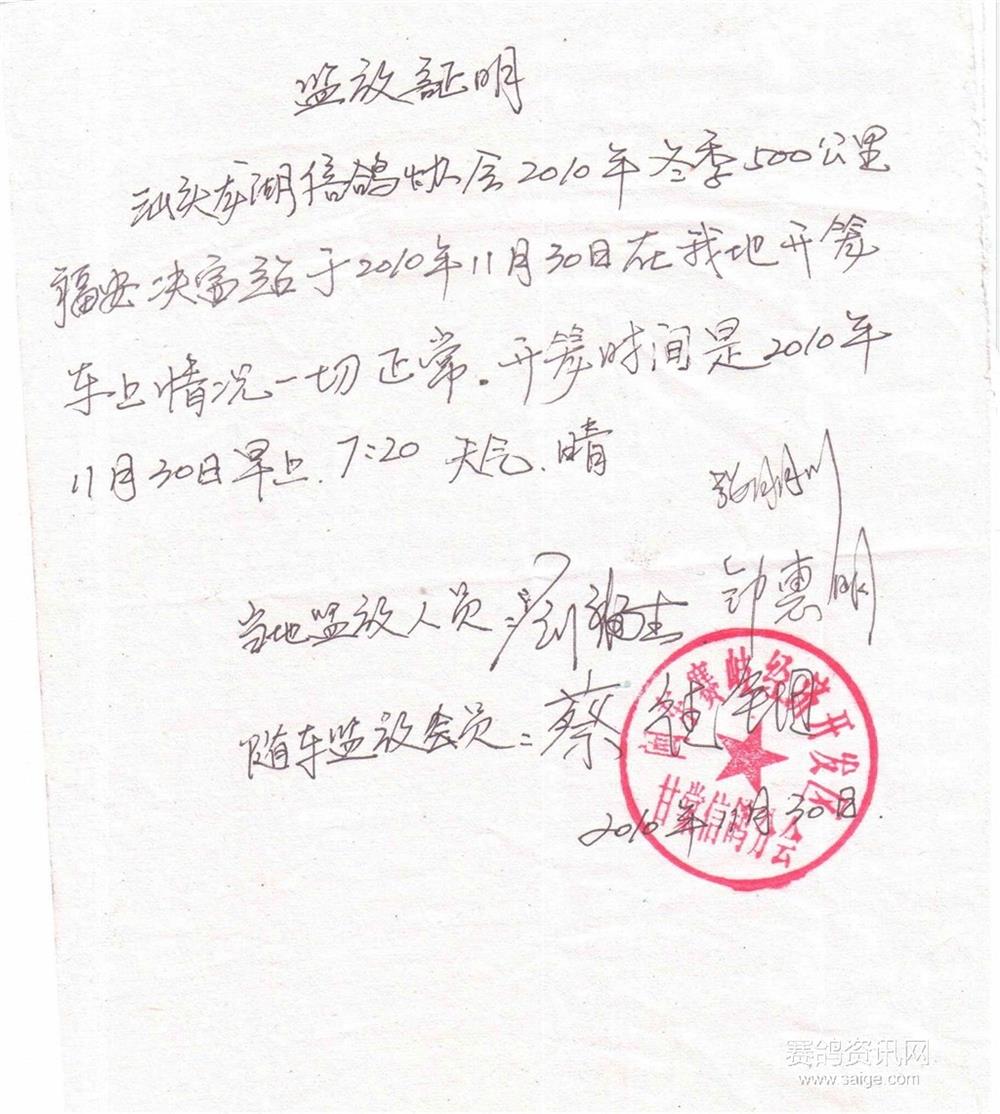 监放証明
汕头龙湖信鸽协会2010年冬季500公里
福安决赛站于2010年11月30日在我地开笼
车上情况一切正常.开笼时间是2010年
11月30日早上.7:20 天气.晴
当地监放人员:劉福生 钟惠明
随车监放会员:蔡
2010年11月30日.
赛岐经济开发区
甘棠信鸽分会
赛鸽资讯网
www.saige.com